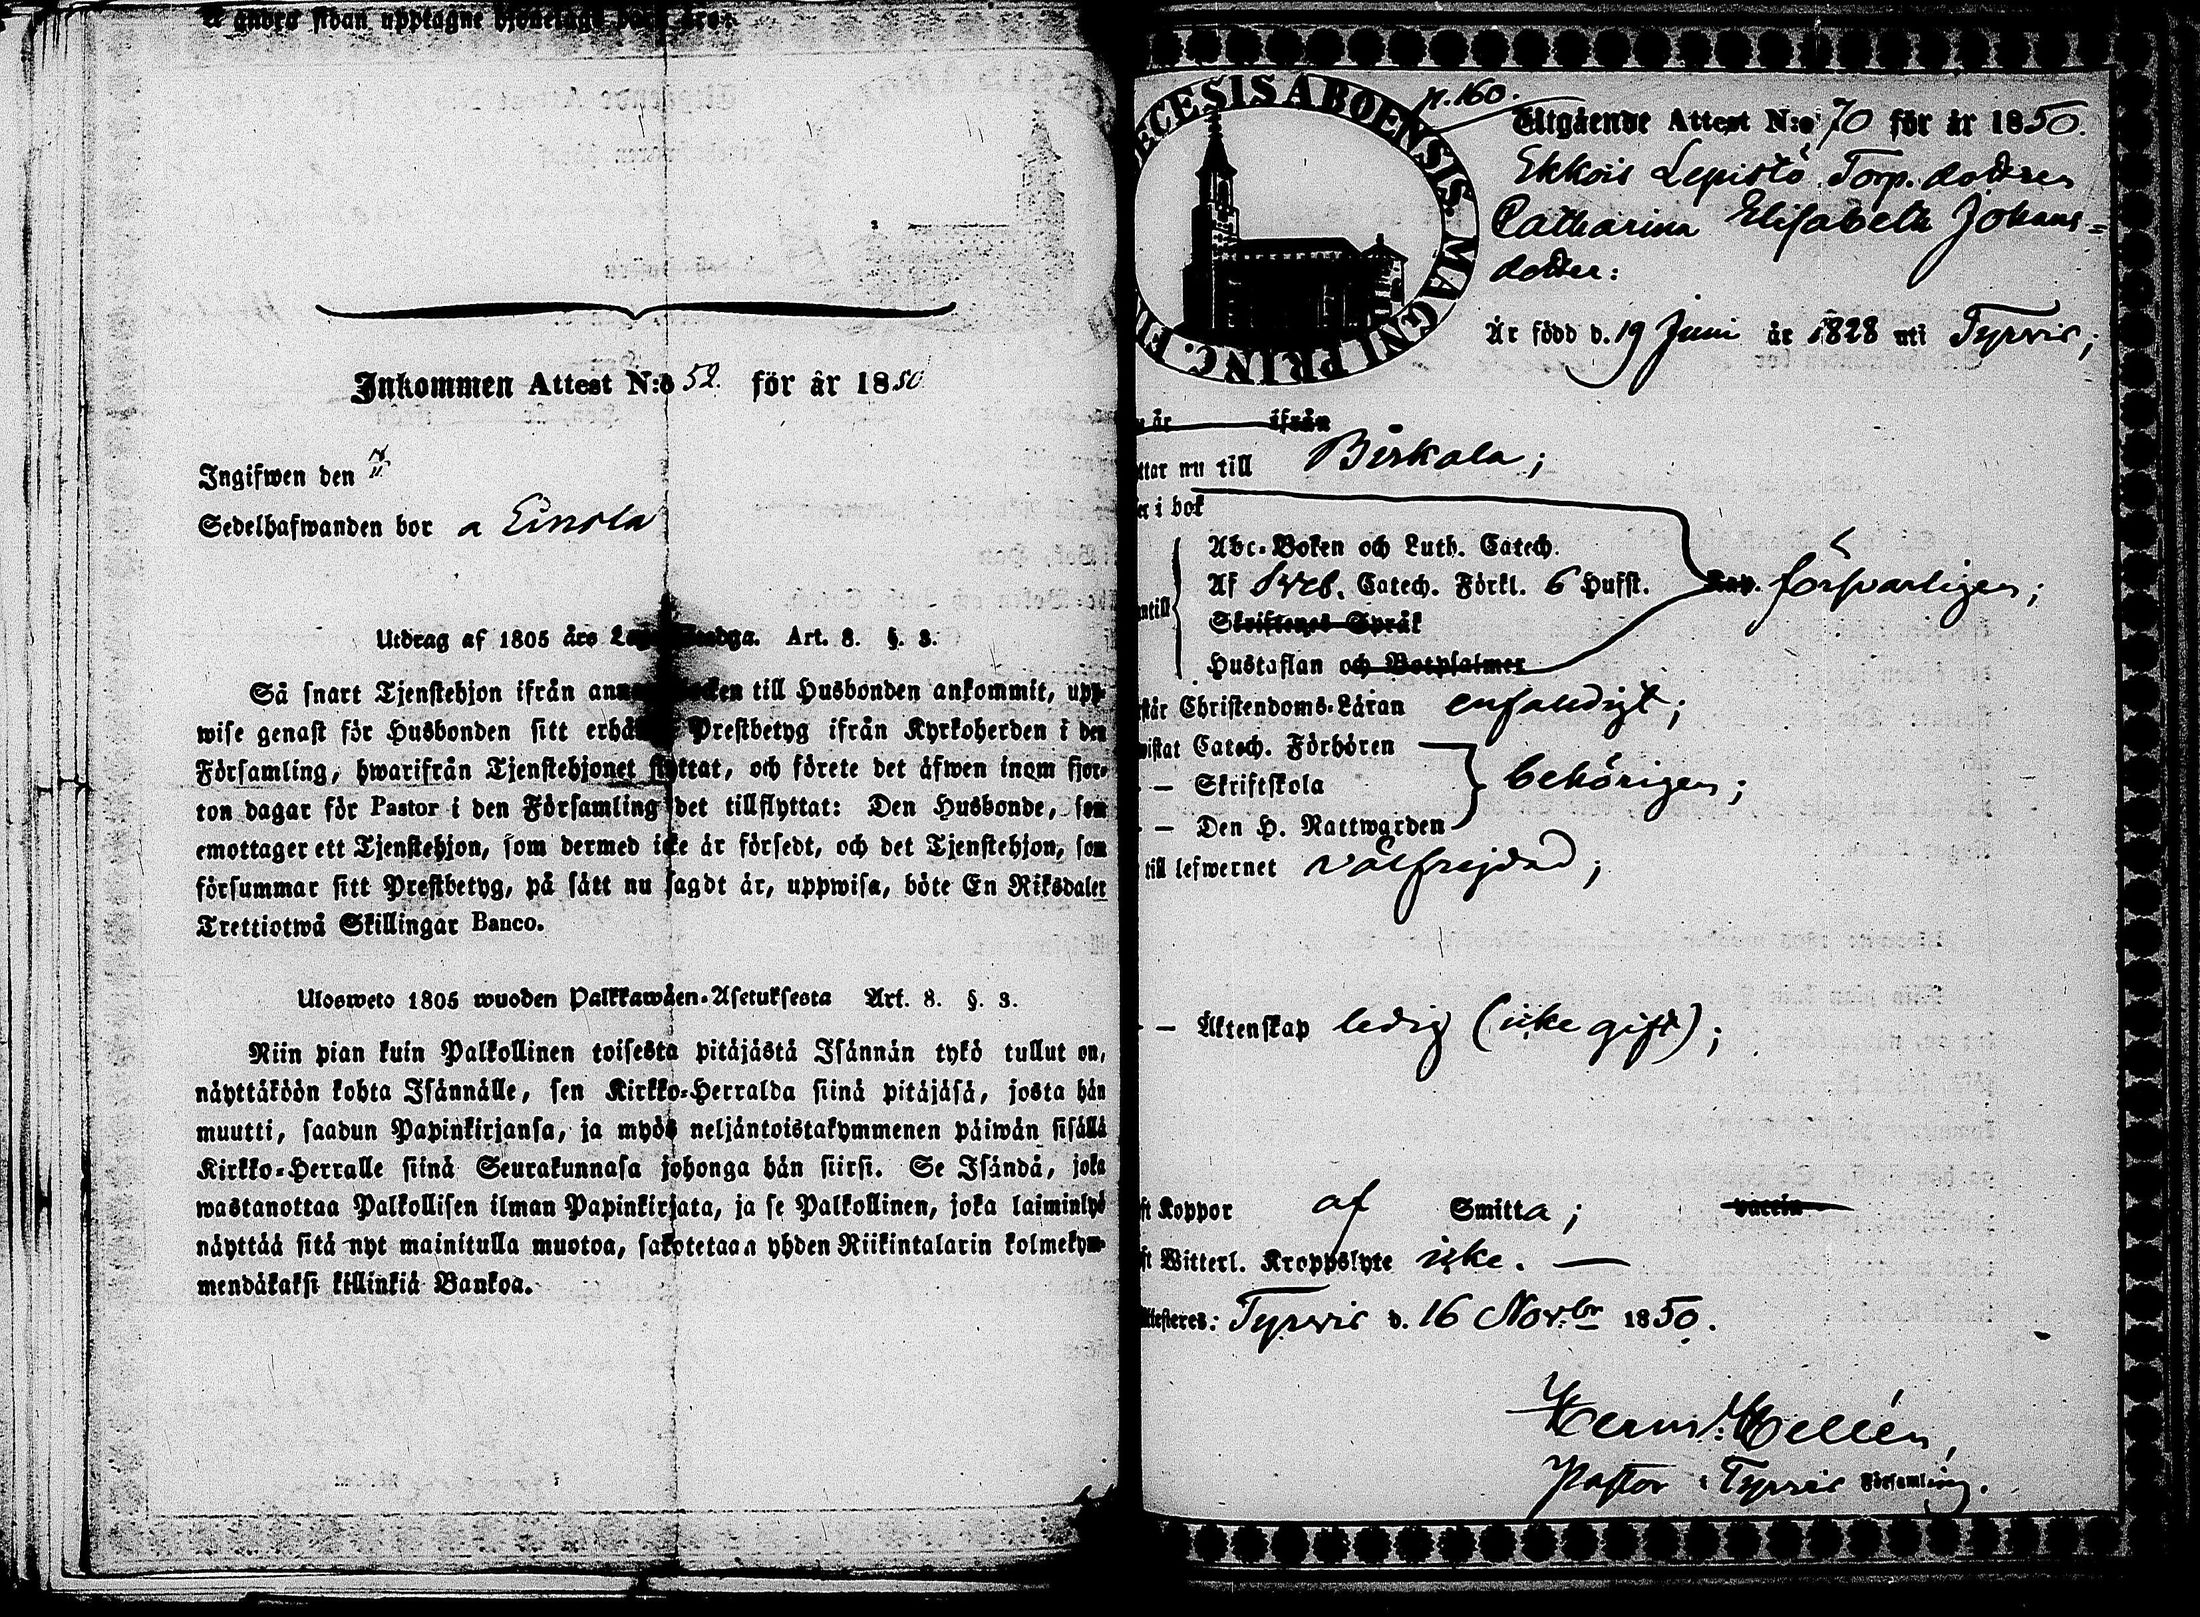 å andra sidan upptagne
Inkommen Attest N:o 52. för år 1850
Ingifwen den
Sedelhafwanden bor a Einola
Utdrag af 1805 års Art. 8. §. 3.
Så snart Tjenstehjon ifrån till Husbonden ankommit, upp-
wise genast för Husbonden sitt Prestbetyg ifrån Kyrkoherden i den
Församling, hwarifrån Tjenstehjonet flyttat, och förete det äfwen inom fjor-
ton dagar för Pastor i den Församling det tillflyttat: Den Husbonde, som
emottager ett Tjenstehjon, som dermed icke är försedt, och det Tjenstehjon, som
försummar sitt Prestbetyg, på sätt nu sagdt är, uppwisa, böte En Riksdaler
Trettiotwå Skillingar Banco.
Ulosweto 1805 wuoden Palkkawäen-Asetuksesta Art. 8. §. 3.
Niin pian kuin Palkollinen toisesta pitäjästä Isännän tykö tullut on,
näyttäköön kohta Isännälle, sen Kirkko-Herralda siinä pitäjäsä, josta hän
muutti, saadun Papinkirjansa, ja myös neljäntoistakymmenen päiwän sisällä
Kirkko-Herralle siinä Seurakunnasa johonga hän siirsi. Se Isändä, joka
wastanottaa Palkollisen ilman Papinkirjata, ja se Palkollinen, joka laiminlyö
näyttää sitä nyt mainitulla muotoa, sakotetaan yhden Riikintalarin kolmekym-
mendäkaksi killinkiä Bankoa.
ECESIS ABOENSIS. MAGNI PRINC. FIN
p. 160.
Utgående Attest N:o 70 för år 1850.
Ekkois Lepistö Torp. dottren
Catharina Elisabeth Johans=
dotter:
Är född d. 19 Juni år 1828 uti Tyrvis;
år ifrån
ttar nu till Birkala;
er i bok
Abc-Boken och Luth. Catech.
Af Sveb. Catech. Förkl. 6 Hufst. försvarligen;
antill
Skriftenes Språk
Hustaflan och Botpsalmer
står Christendoms-Läran enfaldigt;
wistat Catech. Förhören
- - Skriftskola behörigen;
- - Den H. Nattwarden
till lefwernet välfrejdad;
- - Äktenskap ledig (icke gift);
ft Koppor af Smitta; vaccin
ft Witterl. Kroppslyte icke.
Attesteres: Tyrvis d. 16 Novbr 1850.
Herm: Hellén,
Pastor i Tyrvis Församling.